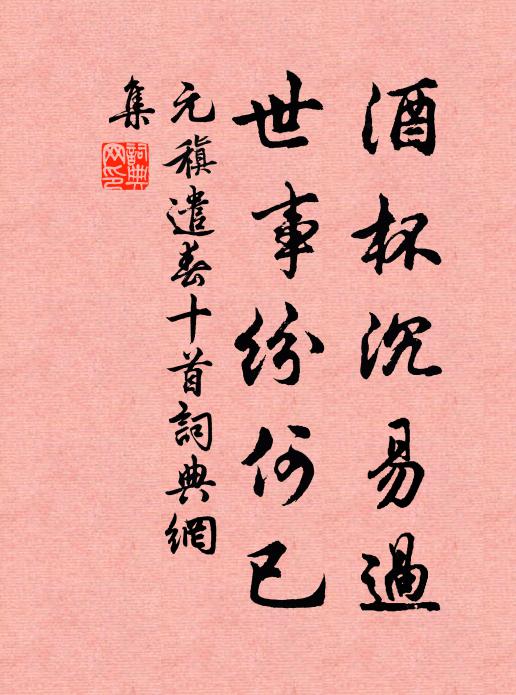 酒杯沉易過
世事紛何已
元稹遣春十首詞典網
集
詞典
网印